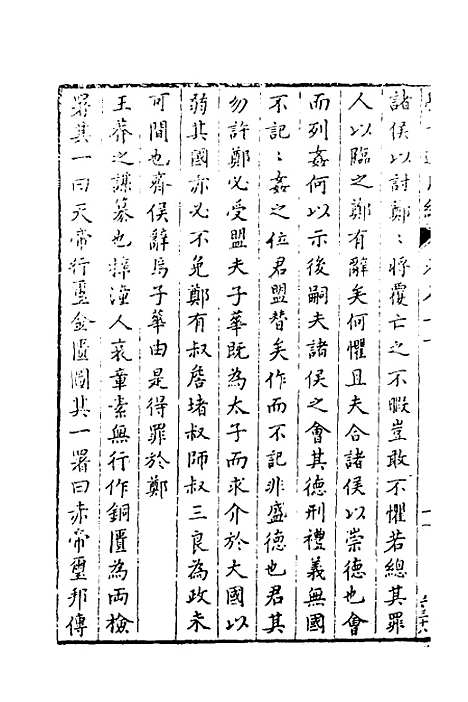 諸侯以討鄭〻將覆亡之不暇豈敢不懼若總其罪
人以臨之鄭有辭矣何懼且夫合諸侯以崇德也會
而列姦何以示後嗣夫諸侯之會其德刑禮義無國
不記〻姦之位君盟替矣作而不記非盛德也君其
勿許鄭必受盟夫子華既為太子而求介於大國以
弱其國亦必不免鄭有叔詹堵叔師叔三良為政未
可間也齊侯辭焉子華由是得罪於鄭
王莽之謀篡也梓潼人哀章素無行作銅匱為兩檢
署其一曰天帝行璽金匱圖其一署曰赤帝璽邦傳